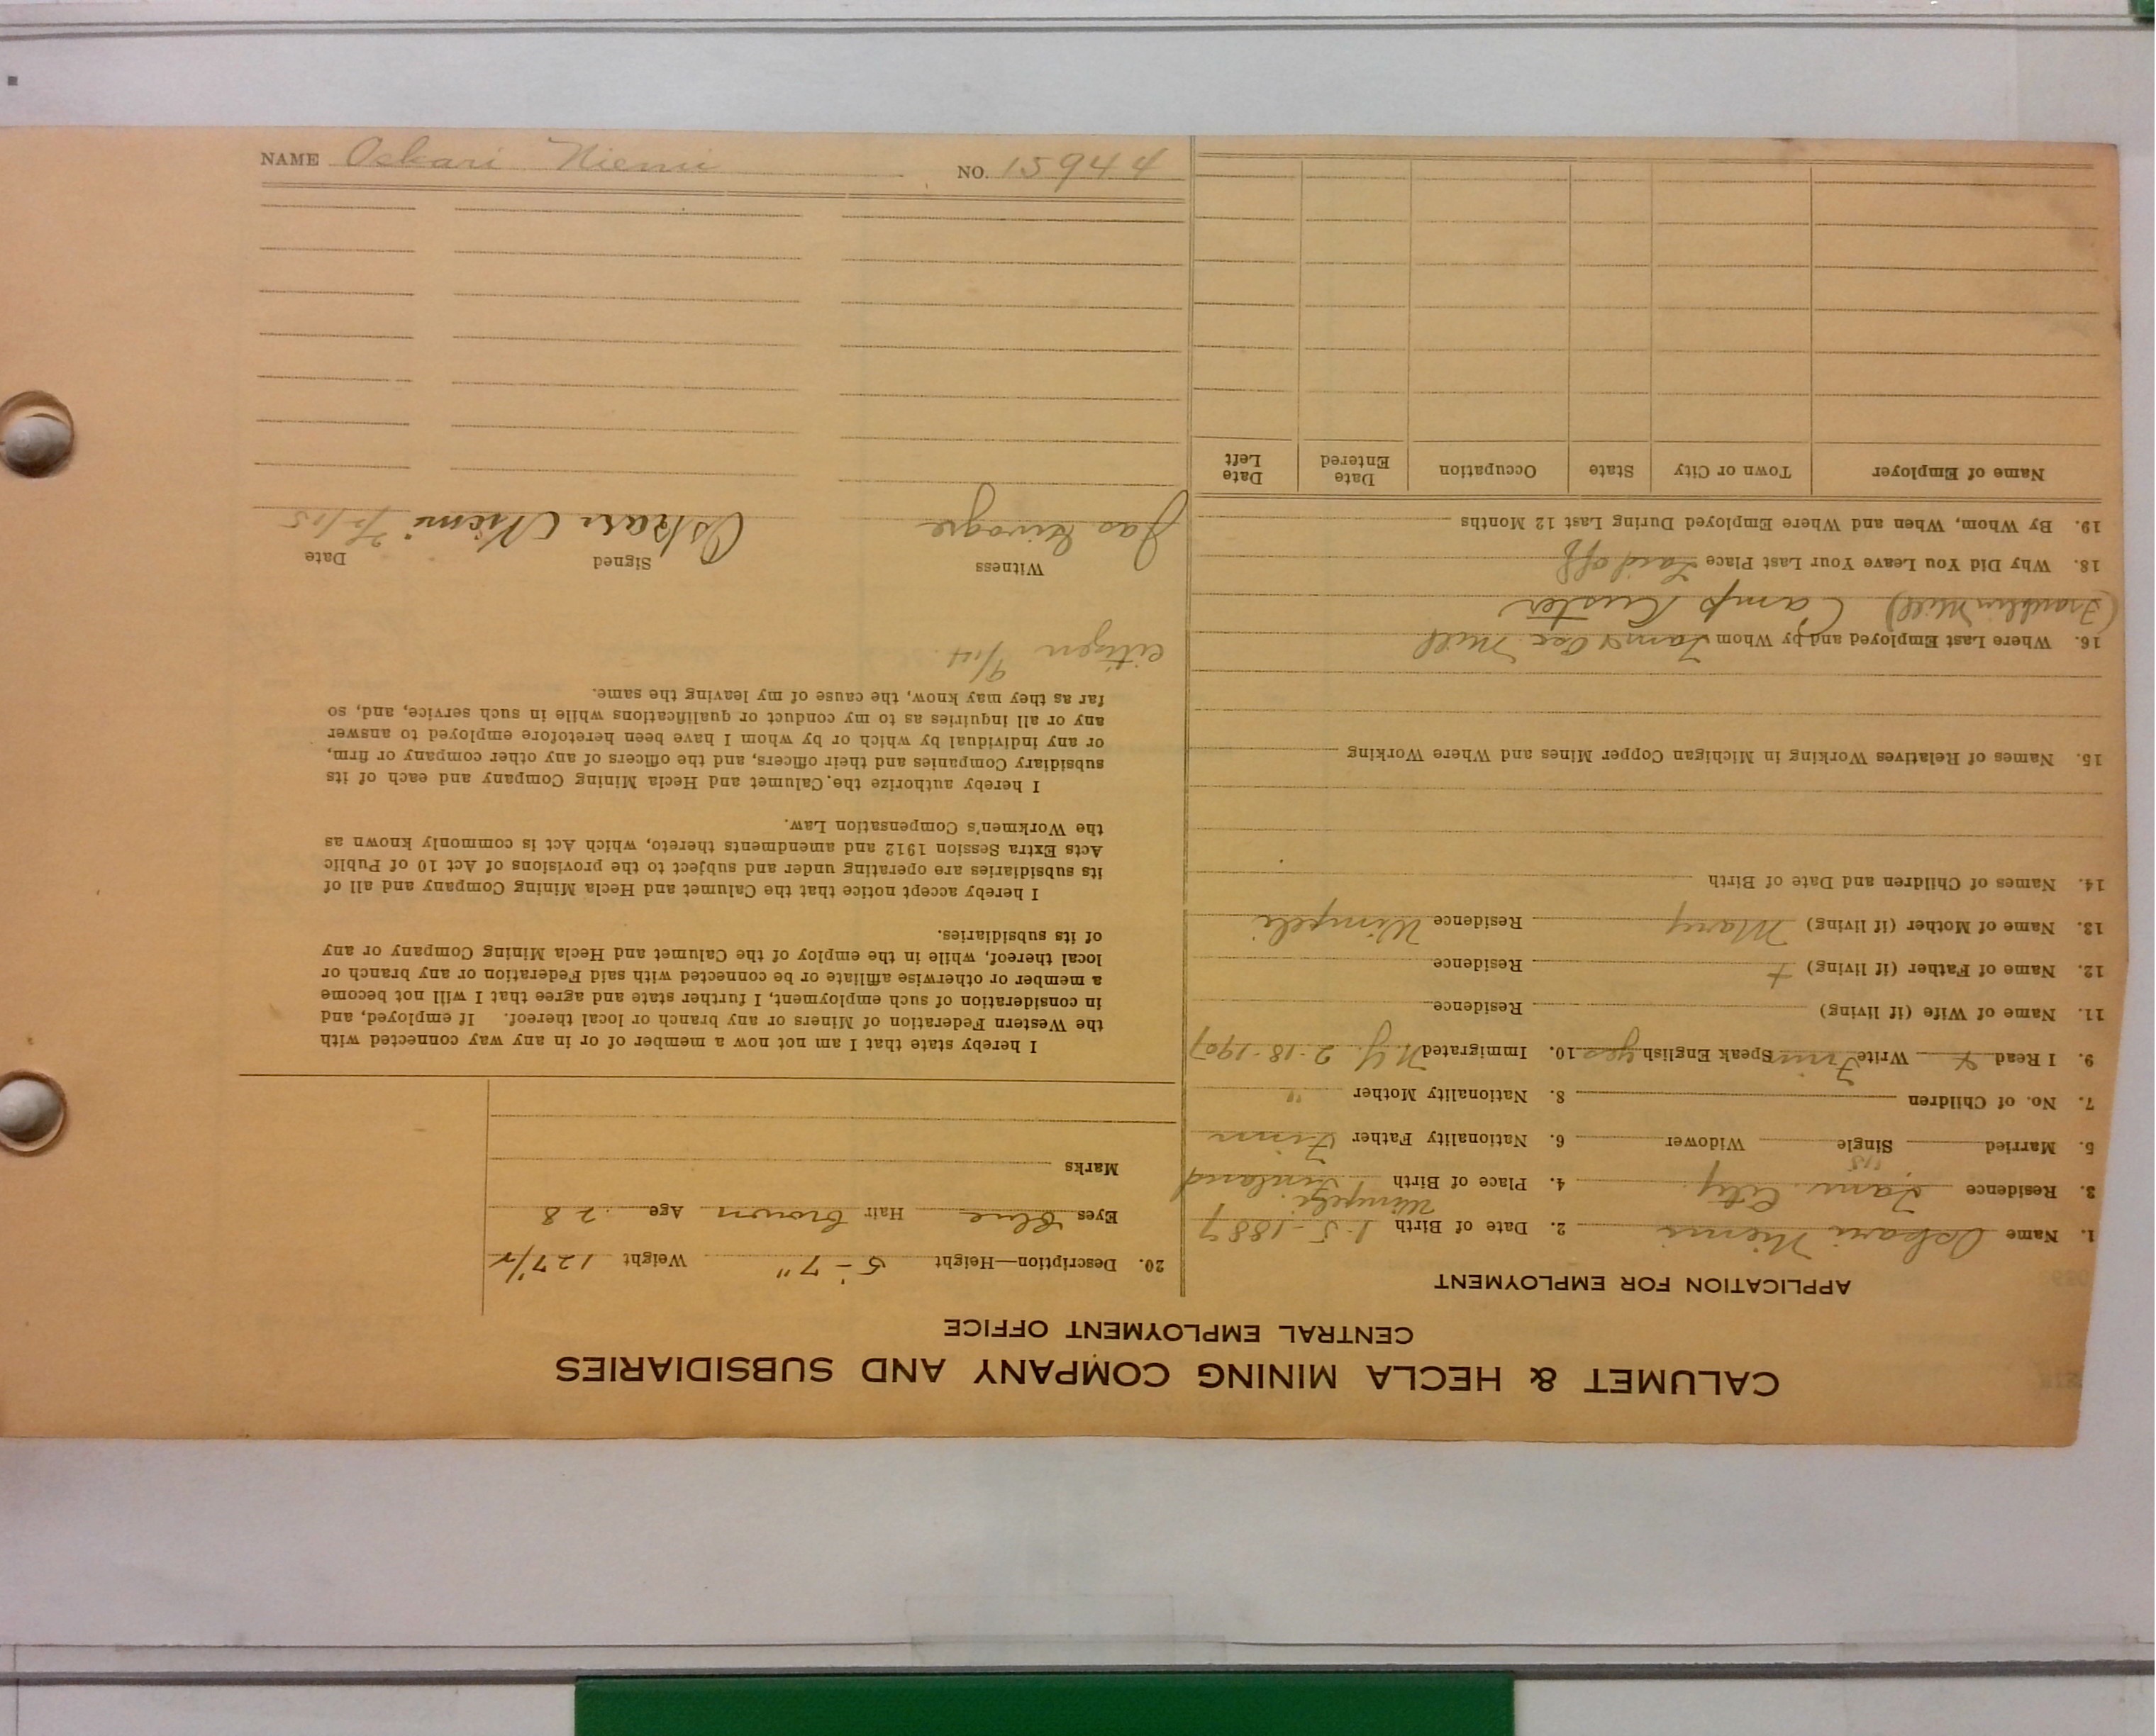 CALUMET & HECLA MINING COMPANY AND SUBSIDIARIES
CENTRAL EMPLOYMENT OFFICE
APPLICATION FOR EMPLOYMENT
1. Name Oskari Niemi 2. Date of Birth 1-5-1887
3. Residence City 4. Place of Birth Wimpeli Finland
5. Married Single Widower 6. Nationality Father Finn
7. No. of Children 8. Nationality Mother "
9. I Read Write Finn Speak English yes 10. Immigrated N.Y. 2-18-1907
11. Name of Wife (if living) Residence
12. Name of Father (if living) + Residence
13. Name of Mother (if living) Mary Residence Wimpeli
14. Names of Children and Date of Birth
15. Names of Relatives Working in Michigan Copper Mines and Where Working
16. Where Last Employed and by Whom Mill
(Franklin Mill) Camp
18. Why Did You Leave Your Last Place Laid off
19. By Whom, When and Where Employed During Last 12 Months
Name of Employer Town or City State Occupation Date Entered Date Left
20. Description—Height 5'-7" Weight 127½
Eyes Blue Hair brown Age 28
Marks
I hereby state that I am not now a member of or in any way connected with
the Western Federation of Miners or any branch or local thereof. If employed, and
in consideration of such employment, I further state and agree that I will not become
a member or otherwise affiliate or be connected with said Federation or any branch or
local thereof, while in the employ of the Calumet and Hecla Mining Company or any
of its subsidiaries.
I hereby accept notice that the Calumet and Hecla Mining Company and all of
its subsidiaries are operating under and subject to the provisions of Act 10 of Public
Acts Extra Session 1912 and amendments thereto, which Act is commonly known as
the Workmen's Compensation Law.
I hereby authorize the Calumet and Hecla Mining Company and each of its
subsidiary Companies and their officers, and the officers of any other company or firm,
or any individual by which or by whom I have been heretofore employed to answer
any or all inquiries as to my conduct or qualifications while in such service, and, so
far as they may know, the cause of my leaving the same.
citizen
Witness Signed Date
Jas Oskari Niemi
NAME Oskari Niemi NO. 15944